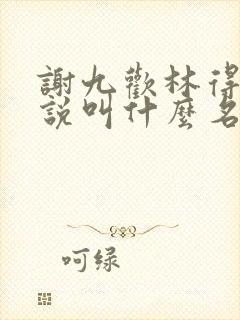 謝九歡林得
說叫什麼名
呵绿